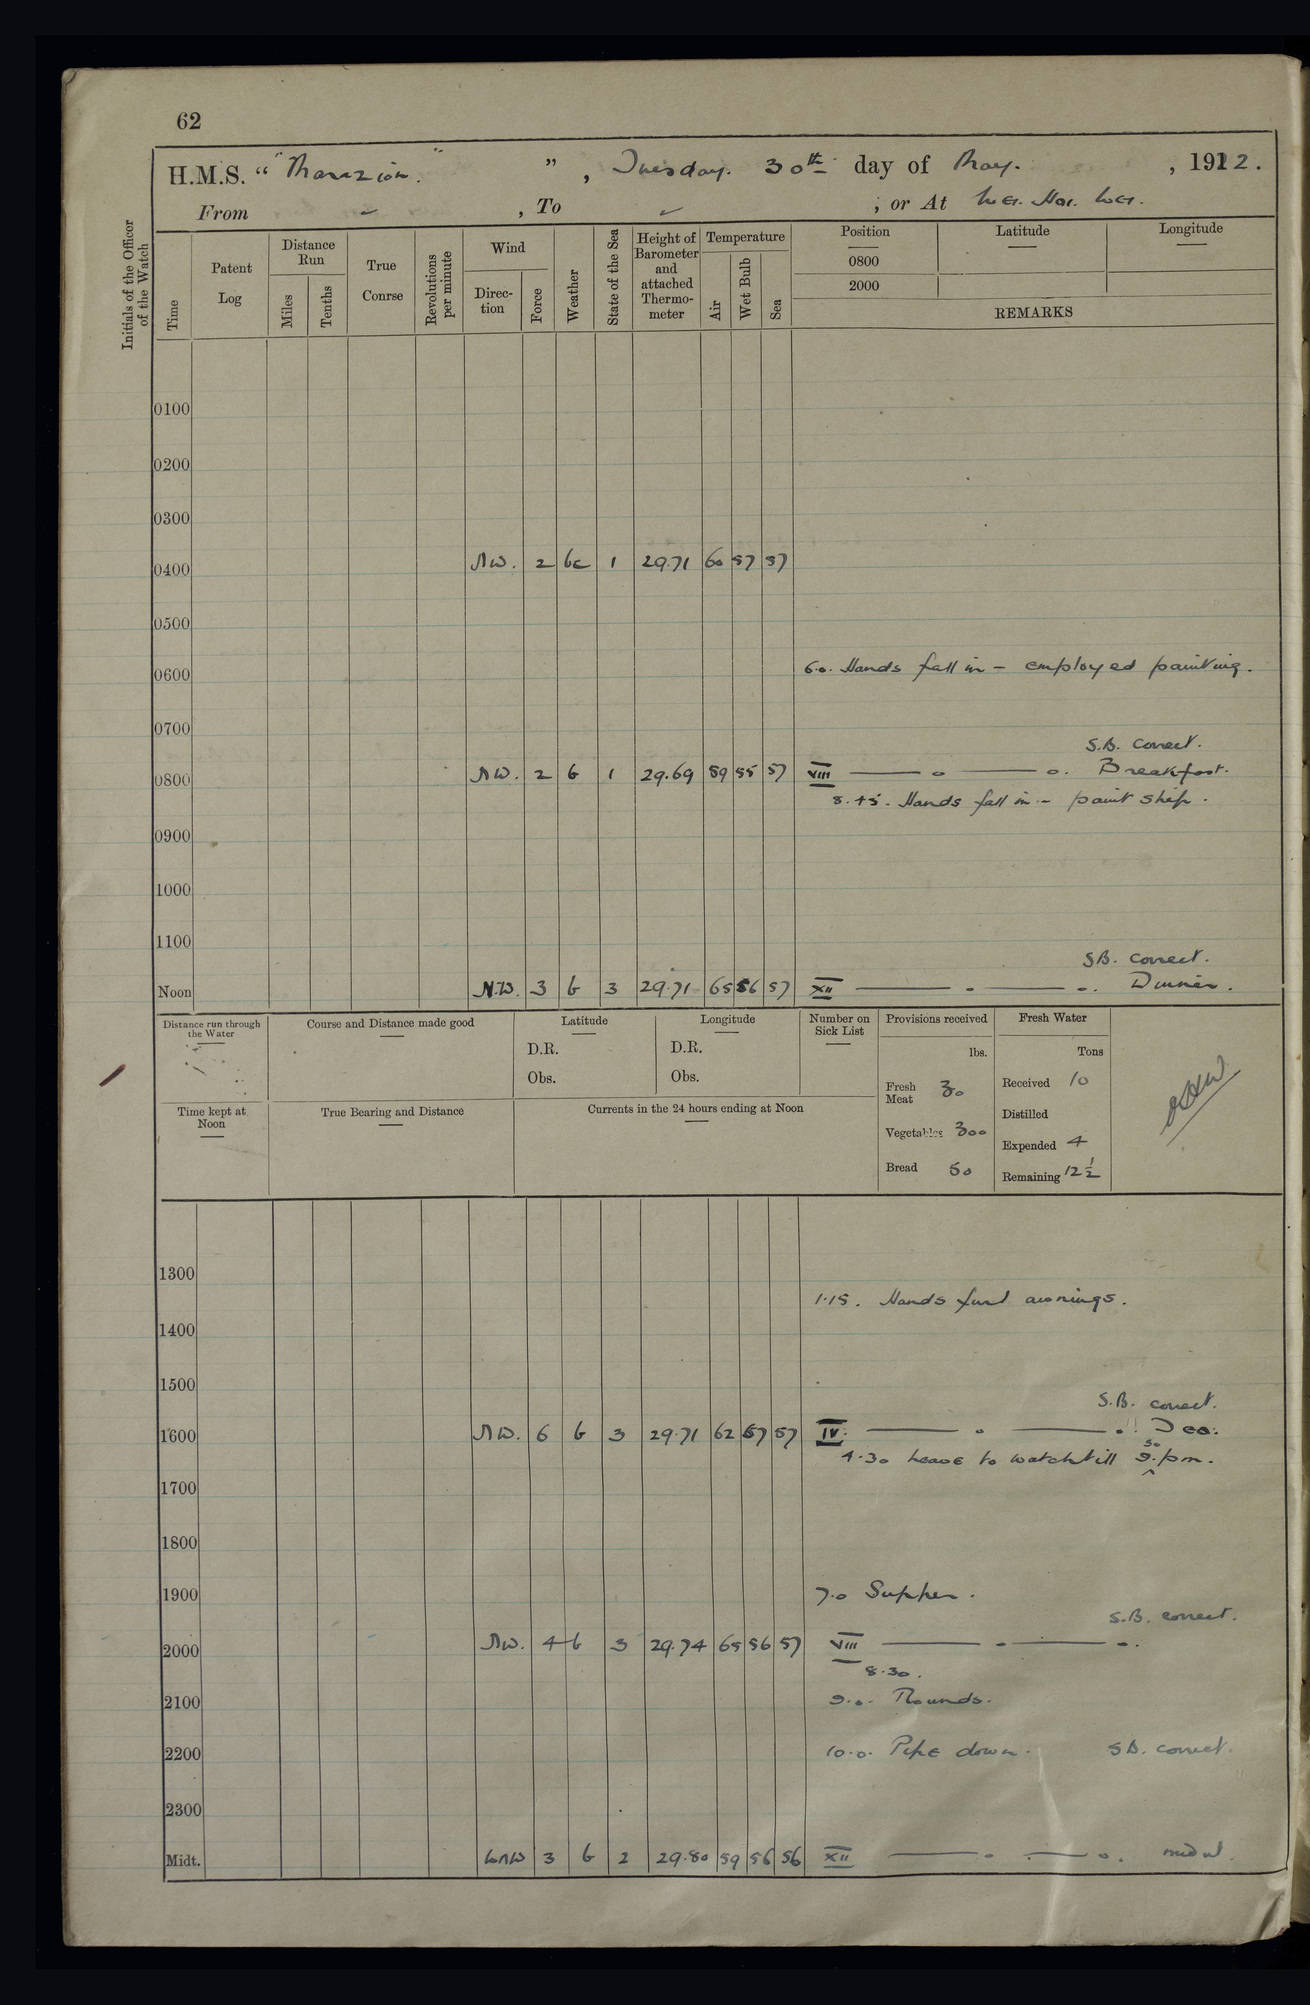 62
H.M.S. " "Marazion." ", Tuesday. 30th day of May. , 1922.
From , To ; or At Wei. Hai. Wei.
Initials of the Officer of the Watch
Time
Patent Log
Distance Run
Miles
Tenths
True Conrse
Revolutions per minute
Wind
Direction
Force
Weather
State of the Sea
Height of Barometer and attached Thermometer
Temperature
Air
Wet Bulb
Sea
Position Latitude Longitude
0800
2000
REMARKS
0100
0200
0300
0400 NW. 2 bc 1 29.71 60 57 57
0500
0600 6.0. Hands fall in – employed painting.
0700
S.B. correct.
0800 NW. 2 b 1 29.69 59 55 57 VIII — o — o. Breakfast.
8.45. Hands fall in – paint ship.
0900
1000
1100
SB. correct.
Noon N.W. 3 b 3 29.71 65 56 57 XII — o — o. Dinner.
Distance run through the Water
Course and Distance made good
Latitude
D.R.
Obs.
Longitude
D.R.
Obs.
Number on Sick List
Provisions received
lbs.
Fresh Meat 30
Vegetables 300
Bread 50
Fresh Water
Tons
Received 10
Distilled
Expended 4
Remaining 12 1/2
Time kept at Noon
True Bearing and Distance
Currents in the 24 hours ending at Noon
1300
1.15. Hands furl awnings.
1400
1500
S.B. correct.
1600 NW. 6 b 3 29.71 62 57 57 IV. — o — o. Tea.
4.30 Leave to watch till 9.30 pm.
1700
1800
1900 7.0 Supper.
S.B. correct.
2000 NW. 4 b 3 29.74 65 56 57 VIII — o — o.
8.30.
2100 9.0. Rounds.
2200 10.0. Pipe down. SB. correct.
2300
Midt. WNW 3 b 2 29.80 59 56 56 XII — o — o.